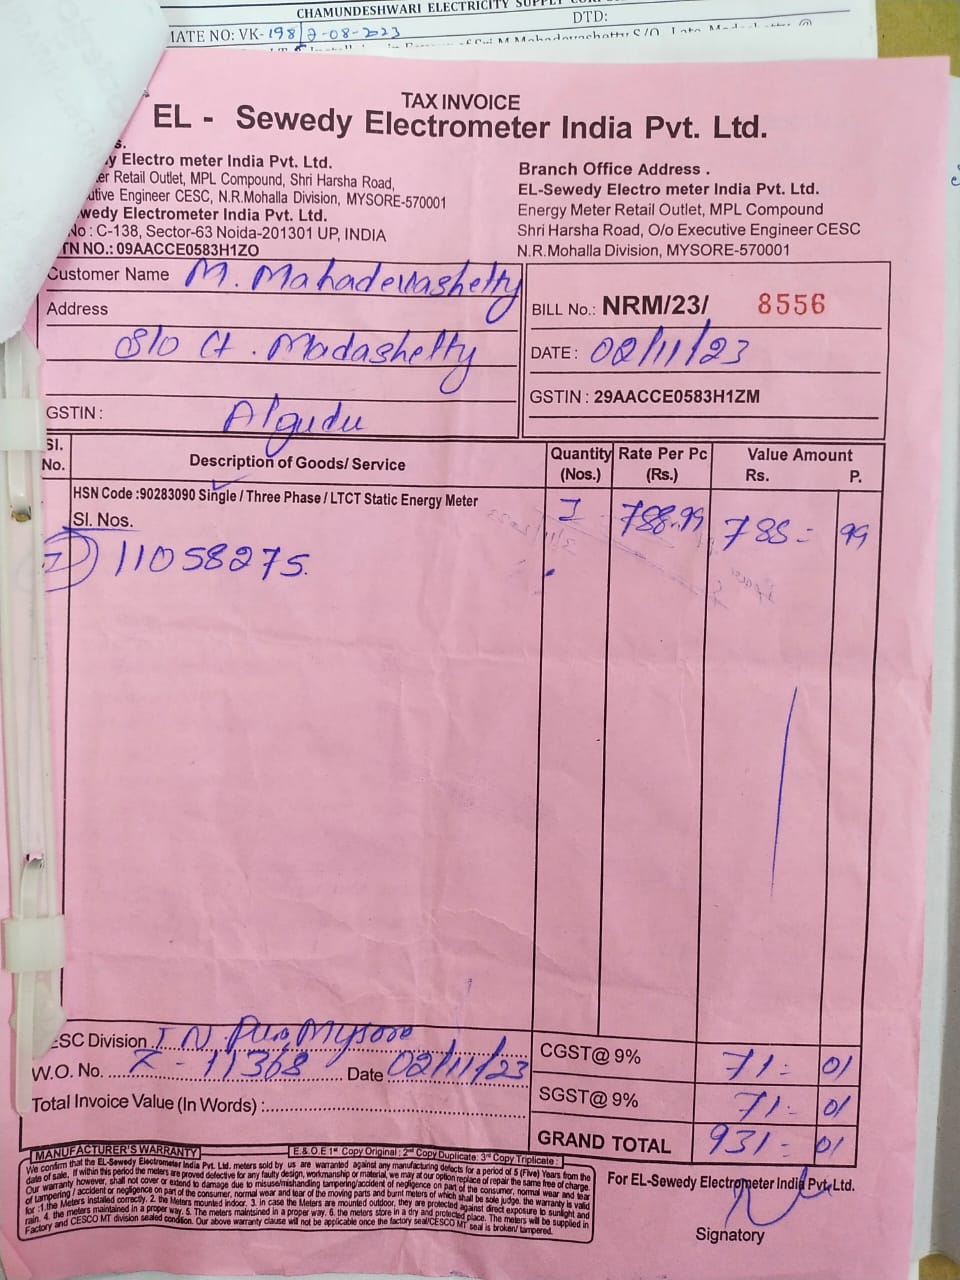 CHAMUNDESHWARI ELECTRICITY SUPPLY
MATE NO: VK-198 2-08-2023 DTD:
TAX INVOICE
EL - Sewedy Electrometer India Pvt. Ltd.
s.
y Electro meter India Pvt. Ltd.
er Retail Outlet, MPL Compound, Shri Harsha Road,
utive Engineer CESC, N.R.Mohalla Division, MYSORE-570001
wedy Electrometer India Pvt. Ltd.
No : C-138, Sector-63 Noida-201301 UP, INDIA
TN NO.: 09AACCE0583H1ZO
Branch Office Address .
EL-Sewedy Electro meter India Pvt. Ltd.
Energy Meter Retail Outlet, MPL Compound
Shri Harsha Road, O/o Executive Engineer CESC
N.R.Mohalla Division, MYSORE-570001
Customer Name M. Mahadevashetty
Address
S/o Lt. Madashetty
GSTIN : Algudu
BILL No.: NRM/23/ 8556
DATE : 02/11/23
GSTIN : 29AACCE0583H1ZM
Sl. No. Description of Goods/ Service Quantity (Nos.) Rate Per Pc (Rs.) Value Amount Rs. P.
HSN Code :90283090 Single / Three Phase / LTCT Static Energy Meter 1 788.99 788= 99
Sl. Nos.
1) 11058275.
ESC Division T N Pura, Mysore
W.O. No. 11368 Date 02/11/23
Total Invoice Value (In Words) :
CGST@ 9% 71= 01
SGST@ 9% 71= 01
GRAND TOTAL 931= 01
MANUFACTURER'S WARRANTY E.& O.E 1st Copy Original : 2nd Copy Duplicate: 3rd Copy Triplicate :
We confirm that the EL-Sewedy Electrometer India Pvt. Ltd. meters sold by us are warranted against any manufacturing defects for a period of 5 (Five) Years from the
date of sale. If within this period the meters are proved defective for any faulty design, workmanship or material, we may at our option replace of repair the same free of charge.
Our warranty however, shall not cover or extend to damage due to misuse/mishandling tampering/accident of negligence on part of the consumer, normal wear and tear
for :1.the Meters installed correctly. 2. the Meters mounted indoor. 3. in case the Meters are mounted outdoor, they are protected against direct exposure to sunlight and
rain. 4. the meters maintained in a proper way. 5. The meters maintained in a proper way. 6. the meters store in a dry and protected place. The meters will be supplied in
Factory and CESCO MT division sealed condition. Our above warranty clause will not be applicable once the factory seal/CESCO MT seal is broken/ tampered.
For EL-Sewedy Electrometer India Pvt. Ltd.
Signatory